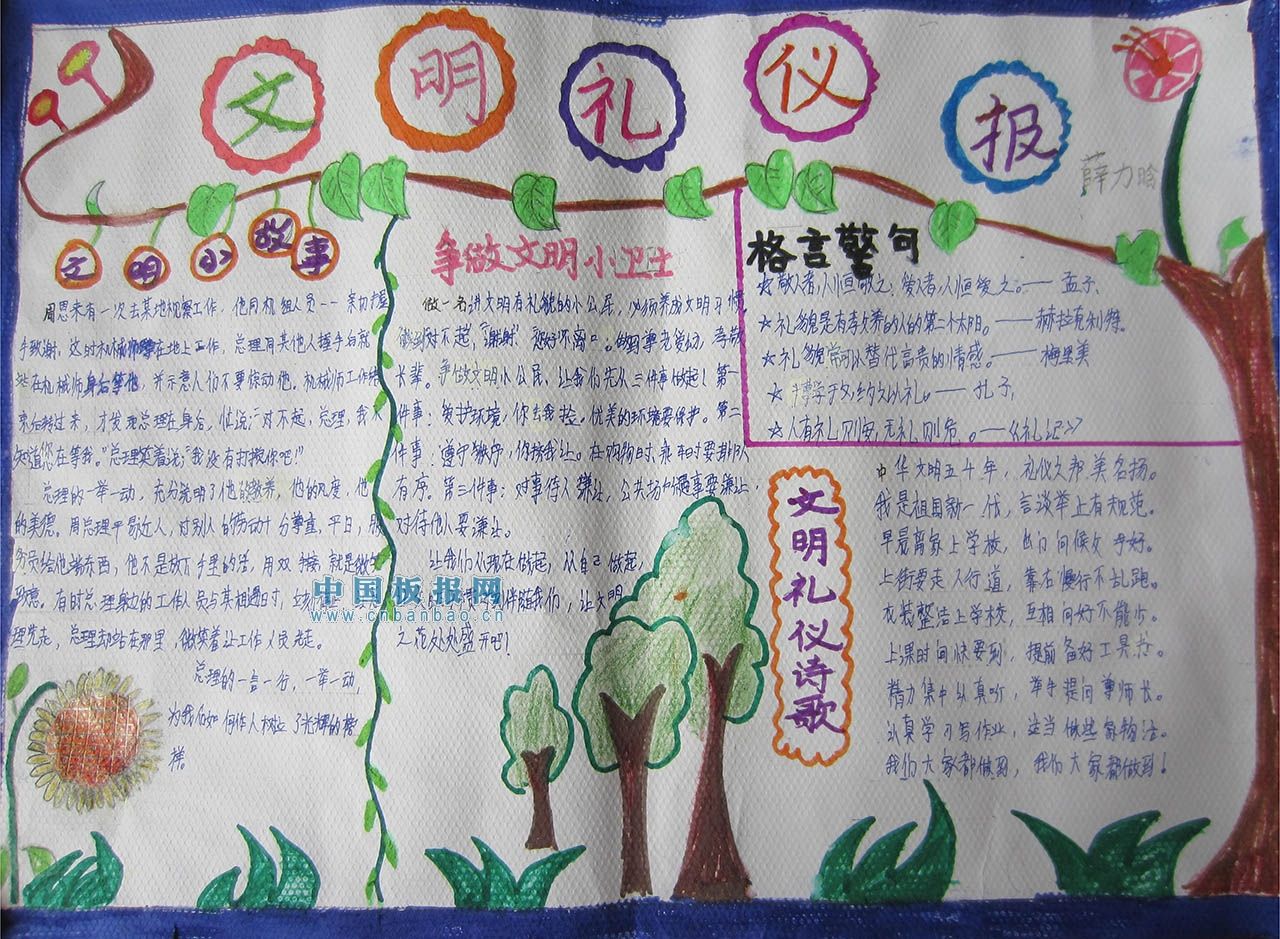 文明礼仪报
薛力晗
文明小故事
周恩来有一次去某地视察工作，他同机组人员一一亲切握
手致谢，这时机械师在地上工作，总理同其他人握手后就
站在机械师身后等他，并示意人们不要惊动他。机械师工作结
束后转过来，才发现总理在身后，忙说：“对不起，总理，我不
知道您在等我。”总理笑着说：“我没有打搅你吧！”
总理的一举一动，充分说明了他的教养，他的风度，他
的美德。周总理平易近人，对别人的劳动十分尊重，平日，服
务员给他端东西，他不是放下手里的活，用双手接，就是微笑
致意。有时总理身边的工作人员与其相遇时，
理先走，总理却站在那里，微笑着让工作人员先走。
总理的一言一行，一举一动，
为我们如何作人树立了光辉的榜
样。
争做文明小卫士
做一名讲文明有礼貌的小公民，必须养成文明习惯，
做到“对不起”，“谢谢”“您好”不离口。做到尊老爱幼，孝敬
长辈。争做文明小公民，让我们先从三件事做起！第一
件事：爱护环境，你丢我捡。优美的环境要保护。第二
件事：遵守秩序，你挤我让。在购物时，乘车时要排队
有序。第三件事：对事待人谦让，公共场所遇事要谦让，
对待他人要谦让。
让我们从现在做起，从自己做起，
伴随我们，让文明
之花处处盛开吧！
格言警句
☆敬人者，人恒敬之；爱人者，人恒爱之。——孟子，
☆礼貌是有教养的人的第二个太阳。——赫拉克利特。
☆礼貌常可以替代高贵的情感。——梅里美
☆博学于文，约之以礼。——孔子，
☆人有礼则安，无礼则危。——《礼记》
文明礼仪诗歌
中华文明五千年，礼仪之邦美名扬。
我是祖国新一代，言谈举止有规范。
早晨离家上学校，出门问候父母好。
上街要走人行道，靠右慢行不乱跑。
衣装整洁上学校，互相问好不能少。
上课时间快要到，提前备好工具光。
精力集中认真听，举手提问尊师长。
认真学习写作业，适当做些家物活。
我们大家都做到，我们大家都做到！
中国板报网
www.cnbanbao.cn